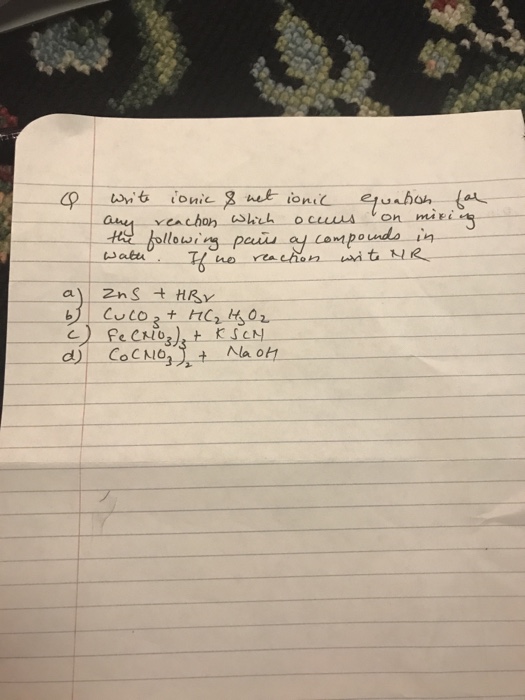 Q write ionic & net ionic equation for
any reaction which occurs on mixing
the following pairs of compounds in
water. If no reaction write NR
a) ZnS + HBr
b) CuCO3 + HC2H3O2
c) Fe(NO3)3 + KSCN
d) Co(NO3)2 + NaOH